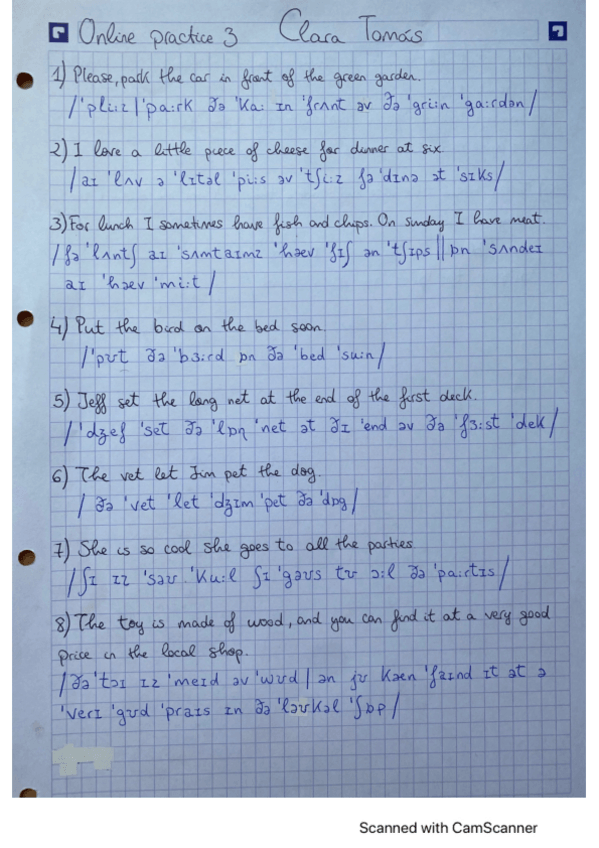 Online practice 3 Clara Tomás
1) Please, park the car in front of the green garden.
/ˈpliːz | ˈpaːrk ðə ˈkaː ɪn ˈfrʌnt əv ðə ˈgriːn ˈgaːrdən/
2) I love a little piece of cheese for dinner at six
/aɪ ˈlʌv ə ˈlɪtəl ˈpiːs əv ˈtʃiːz fə ˈdɪnə ət ˈsɪks/
3) For lunch I sometimes have fish and chips. On sunday I have meat.
/fə ˈlʌntʃ aɪ ˈsʌmtaɪmz ˈhæv ˈfɪʃ ən ˈtʃɪps || ɒn ˈsʌndeɪ
aɪ ˈhæv ˈmiːt/
4) Put the bird on the bed soon.
/ˈpʊt ðə ˈbɜːrd ɒn ðə ˈbed ˈsuːn/
5) Jeff set the long net at the end of the first deck.
/ˈdʒef ˈset ðə ˈlɒŋ ˈnet ət ðɪ ˈend əv ðə ˈfɜːst ˈdek/
6) The vet let Jim pet the dog.
/ðə ˈvet ˈlet ˈdʒɪm ˈpet ðə ˈdɒg/
7) She is so cool she goes to all the parties
/ʃɪ ɪz ˈsəʊ ˈkuːl ʃɪ ˈgəʊs tʊ ɔːl ðə ˈpaːrtɪs/
8) The toy is made of wood, and you can find it at a very good
price in the local shop.
/ðə ˈtɔɪ ɪz ˈmeɪd əv ˈwʊd | ən jʊ kæn ˈfaɪnd ɪt ət ə
ˈverɪ ˈgʊd ˈpraɪs ɪn ðə ˈləʊkəl ˈʃɒp/
Scanned with CamScanner